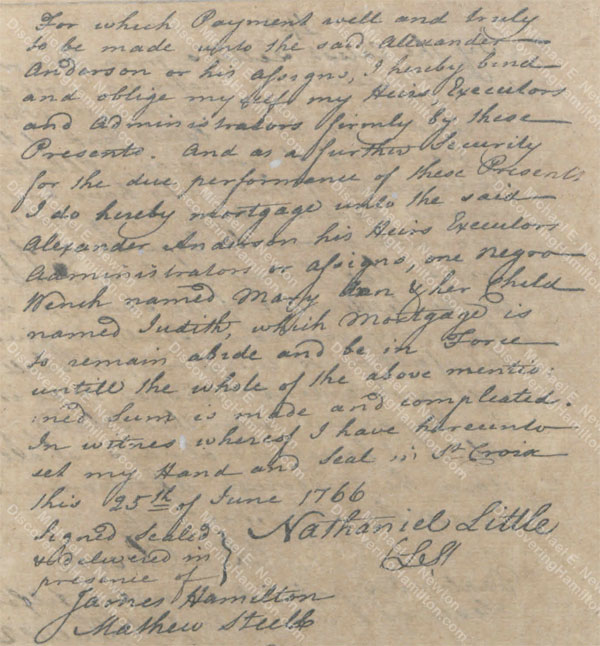 For which Payment well and truly
to be made unto the said Alexander
Anderson or his assigns, I hereby bind
and oblige my self my Heirs, Executors
and Administrators firmly by these
Presents. And as a further Security
for the due performance of these Presents
I do hereby mortgage unto the said
Alexander Anderson his Heirs Executors
Administrators or assigns, one Negro
Wench named Mary Ann & her Child
named Judith, which Mortgage is
to remain abide and be in Force
untill the whole of the above mentio:
:ned Sum is made and compleated.
In witness whereof I have hereunto
set my Hand and Seal in St Croix
this 25th of June 1766
Signed Sealed
& delivered in
presence of
Nathaniel Little
(LS)
James Hamilton
Mathew Steelb
Michael E. Newton
DiscoveringHamilton.com